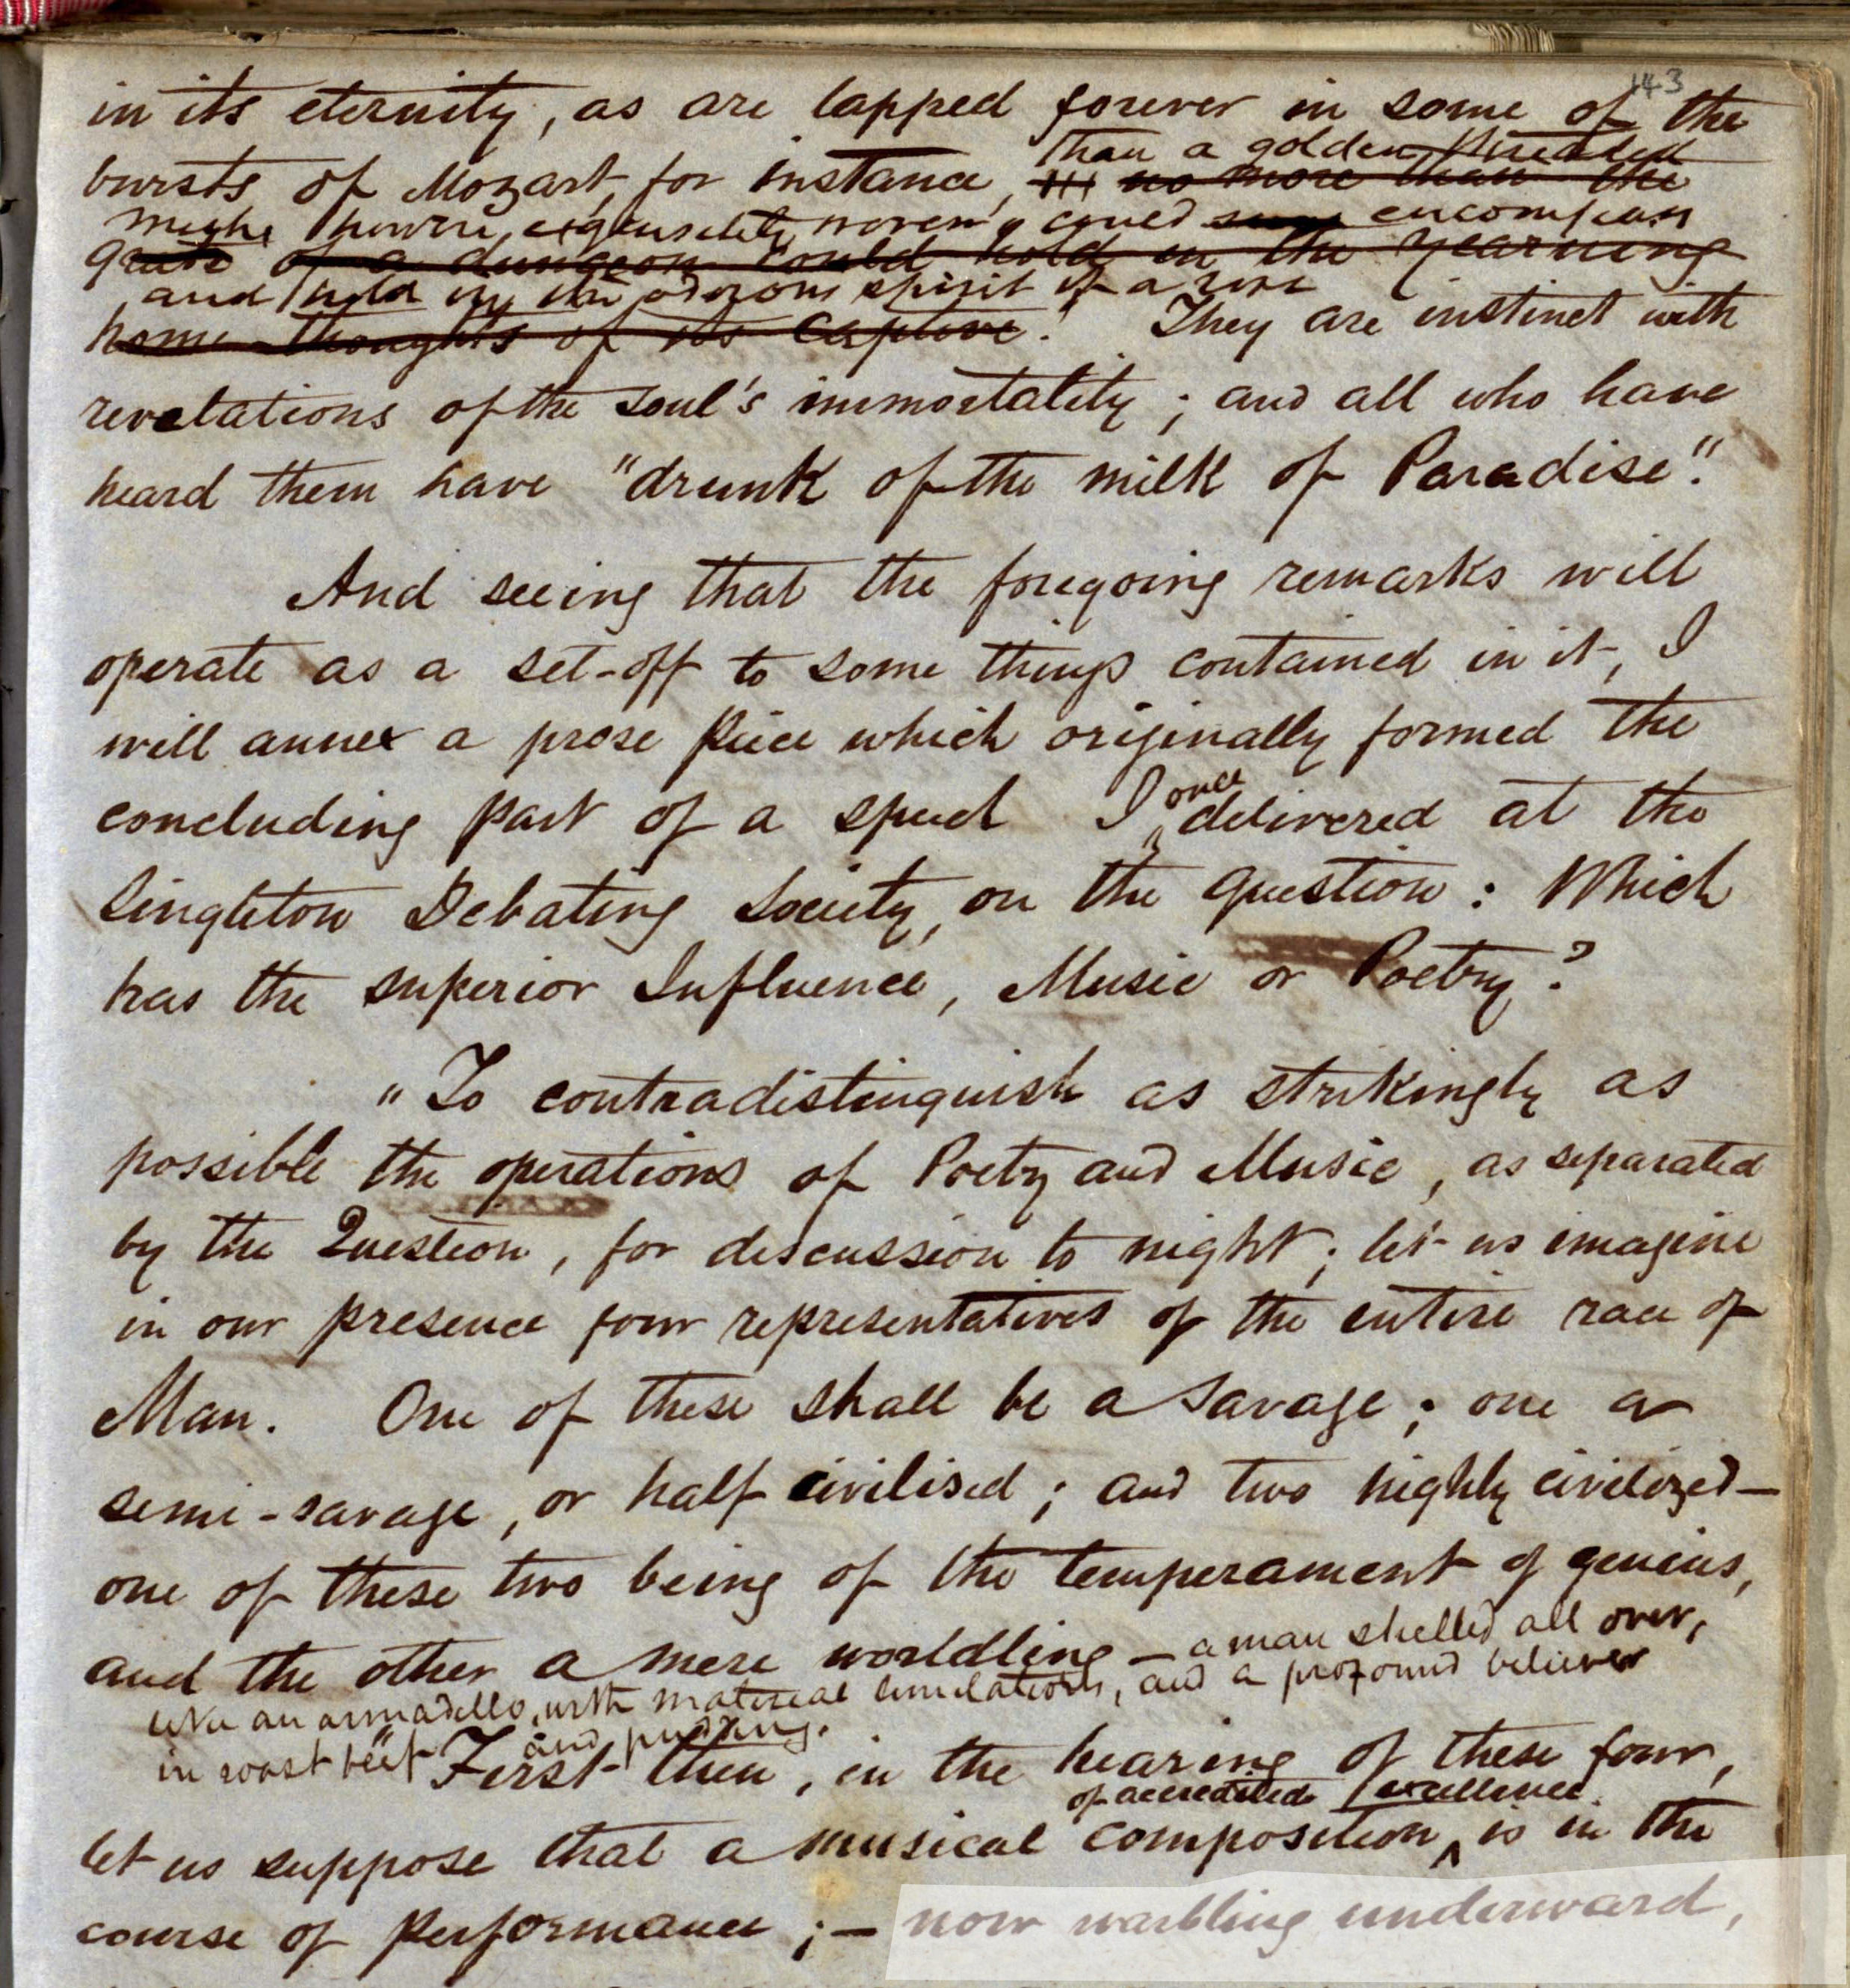 143
in its eternity, as are lapped forever in some of the
than a golden threaded
bursts of Mozart, for instance, no more than the
might, however exquisitely woven, could encompass
grate of a dungeon could hold in the yearning
and hold in the odorous spirit of a rose
home-thoughts of its captive! They are instinct with
revelations of the soul's immortality; and all who have
heard them have "drunk of the milk of Paradise".
And seeing that the foregoing remarks will
operate as a set-off to some things contained in it, I
will annex a prose piece which originally formed the
concluding part of a speech I once delivered at the
Singleton Debating Society, on the question: Which
has the superior Influence, Music or Poetry?
"To contradistinguish as strikingly as
possible the operations of Poetry and Music, as separated
by the Question, for discussion to night; let us imagine
in our presence four representatives of the entire race of
Man. One of these shall be a savage; one a
semi-savage, or half civilised; and two highly civilized—
one of these two being of the temperament of genius,
and the other a mere worldling — a man shelled all over,
like an armadello, with material limitations, and a profound believer
in roast beef and pudding.
"First then, in the hearing of these four,
of accredited excellence
let us suppose that a musical composition ^ is in the
course of performance;— now warbling underward,